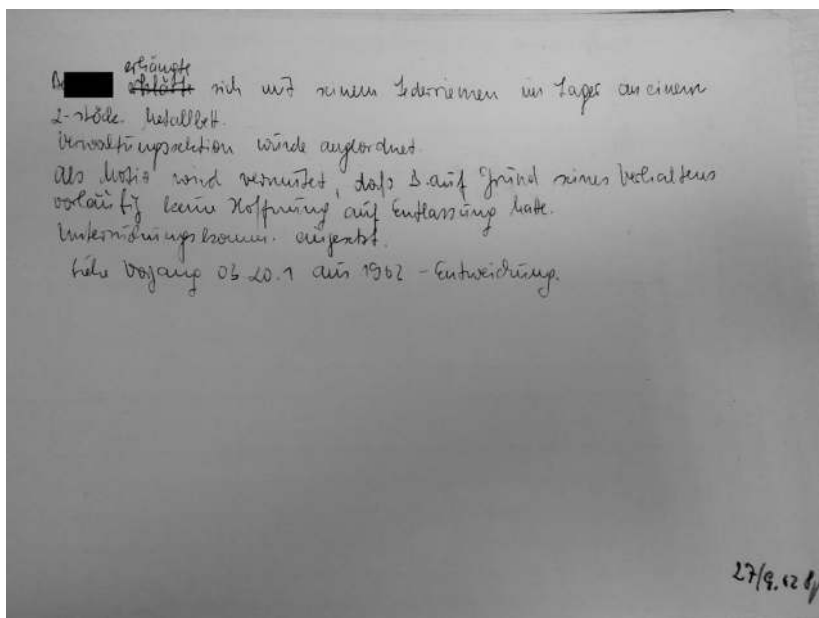 erhängte
sich mit seinem Lederriemen im Lager an einem
2-stöck. Metallbett.
Verwaltungssektion wurde angeordnet.
Als Motiv wird vermutet, daß B. auf Grund seines Verhaltens
vorläufig keine Hoffnung auf Entlassung hatte.
Untersuchungskomm. eingesetzt.
Siehe Vorgang 03 20.1 aus 1962 - Entweichung.
27/9.62